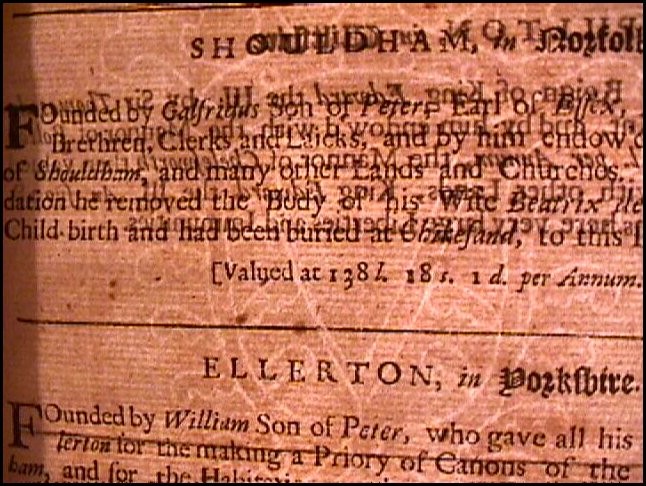 SHOULDHAM, in Norfolk
FOunded by Galfridus Son of Peter, Earl of Essex,
Brethren, Clerks and Laicks, and by him endow'd
of Shouldham, and many other Lands and Churches.
dation he removed the Body of his Wife Beatrix
Child-birth and had been buried at Chikesand, to this
[Valued at 138 l. 18 s. 1 d. per Annum.
ELLERTON, in Yorkshire.
FOunded by William Son of Peter, who gave all his
lerton for the making a Priory of Canons of the
ham, and for the